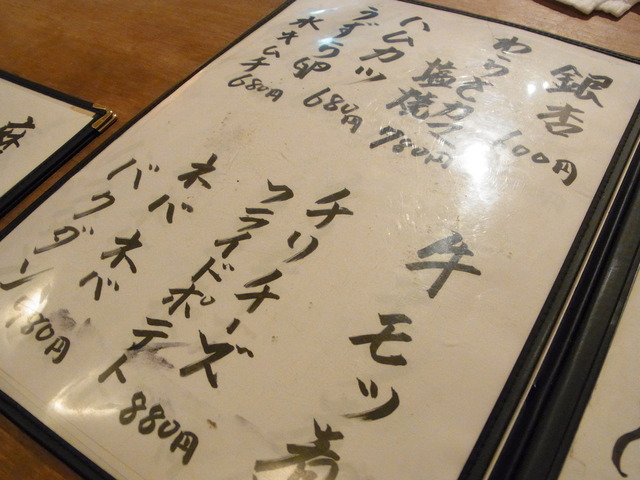 銀杏
600円
塩焼
780円
ハムカツ
うずら卵
680円
水キムチ
680円
牛モツ煮
チリチーズ
フライドポテト
880円
ネバネバ
バクダン
麻